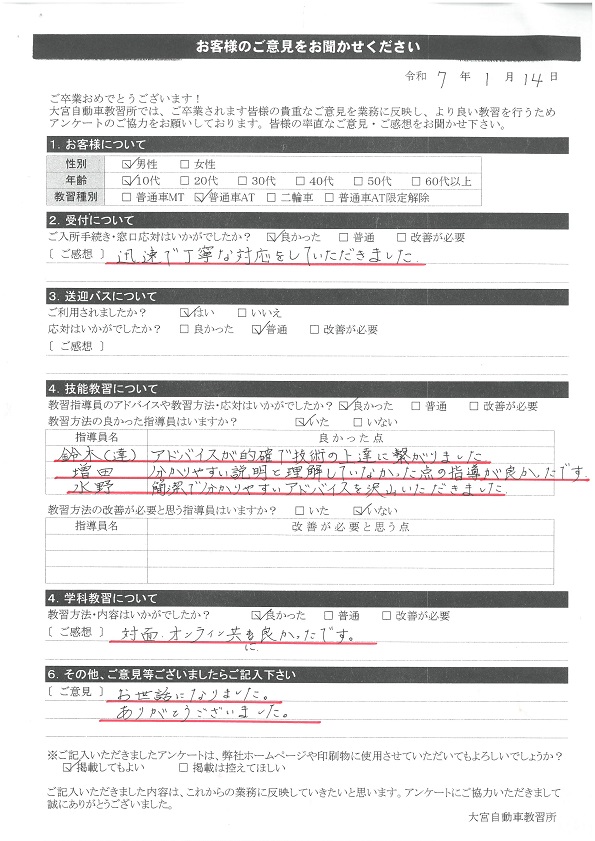 お客様のご意見をお聞かせください
令和 7 年 1 月 14 日
ご卒業おめでとうございます！
大宮自動車教習所では、ご卒業されます皆様の貴重なご意見を業務に反映し、より良い教習を行うため
アンケートのご協力をお願いしております。皆様の率直なご意見・ご感想をお聞かせ下さい。
1. お客様について
性別 ☑男性 □女性
年齢 ☑10代 □20代 □30代 □40代 □50代 □60代以上
教習種別 □普通車MT ☑普通車AT □二輪車 □普通車AT限定解除
2. 受付について
ご入所手続き・窓口応対はいかがでしたか？ ☑良かった □普通 □改善が必要
〔 ご感想 〕 迅速で丁寧な対応をしていただきました
3. 送迎バスについて
ご利用されましたか？ ☑はい □いいえ
応対はいかがでしたか？ □良かった ☑普通 □改善が必要
〔 ご感想 〕
4. 技能教習について
教習指導員のアドバイスや教習方法・応対はいかがでしたか？ ☑良かった □普通 □改善が必要
教習方法の良かった指導員はいますか？ ☑いた □いない
指導員名 良かった点
鈴木(達) アドバイスが的確で技術の上達に繋がりました
増田 分かりやすい説明と理解していなかった点の指導が良かったです
水野 簡潔で分かりやすいアドバイスを沢山いただきました
教習方法の改善が必要と思う指導員はいますか？ □いた ☑いない
指導員名 改善が必要と思う点
4. 学科教習について
教習方法・内容はいかがでしたか？ ☑良かった □普通 □改善が必要
〔 ご感想 〕 対面、オンライン共に良かったです。
6. その他、ご意見等ございましたらご記入下さい
〔 ご意見 〕 お世話になりました。
ありがとうございました。
※ご記入いただきましたアンケートは、弊社ホームページや印刷物に使用させていただいてもよろしいでしょうか？
☑掲載してもよい □掲載は控えてほしい
ご記入いただきました内容は、これからの業務に反映していきたいと思います。アンケートにご協力いただきまして
誠にありがとうございました。
大宮自動車教習所